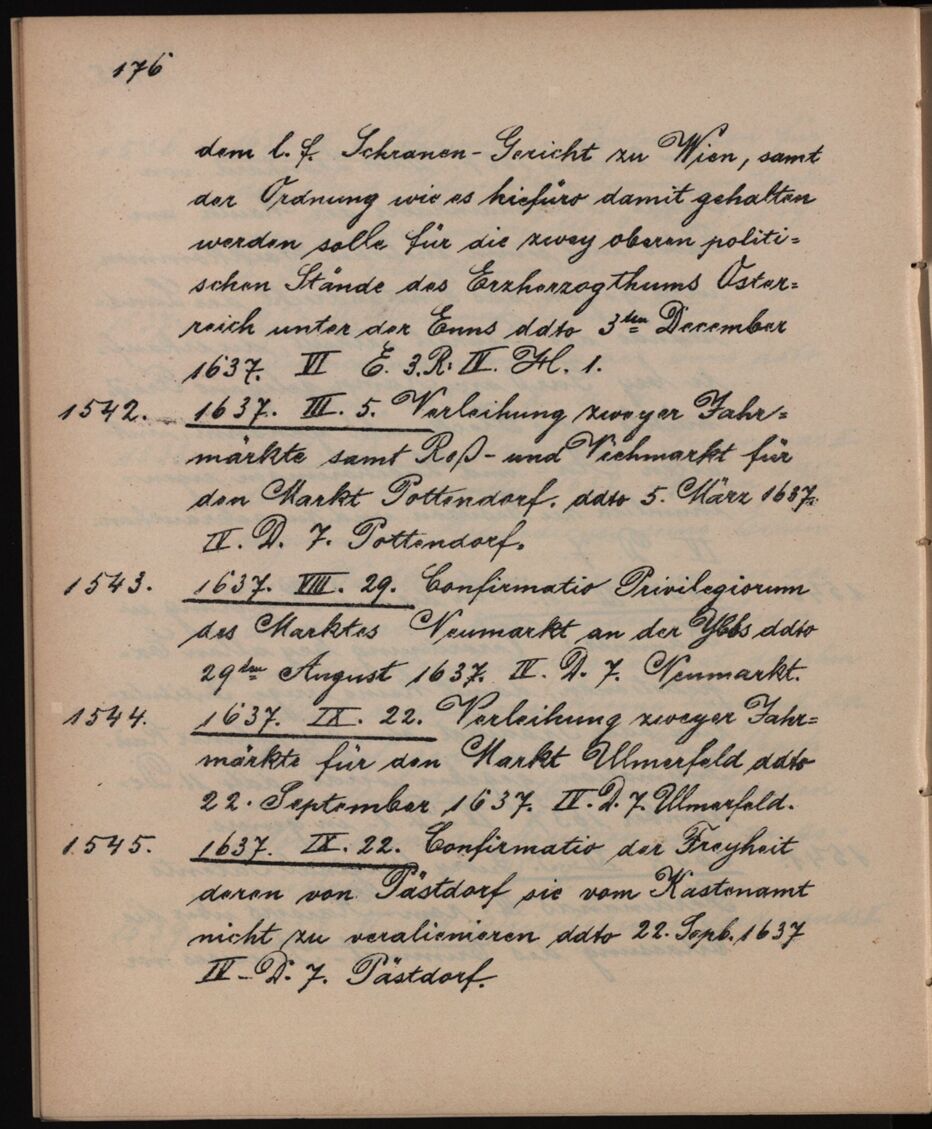 176
dem l. f. Schranen-Gericht zu Wien, samt
der Ordnung wie es hiefüro damit gehalten
werden solle für die zwey oberen politi=
schen Stände des Erzherzogthums Öster=
reich unter der Enns ddto 3ten December
1637. VI E. 3. R: IV. H. 1.
1542. 1637. III. 5. Verleihung zweyer Jahr=
märkte samt Roß- und Viehmarkt für
den Markt Pottendorf. ddto 5. März 1637.
IV. D. 7. Pottendorf.
1543. 1637. VIII. 29. Confirmatio Privilegiorum
des Marktes Neumarkt an der Ybbs ddto
29ten August 1637. IV. D. 7. Neumarkt.
1544. 1637. IX. 22. Verleihung zweyer Jahr=
märkte für den Markt Ulmerfeld ddto
22. September 1637. IV. D. 7. Ulmerfeld.
1545. 1637. IX. 22. Confirmatio der Freyheit
deren von Pästdorf sie vom Kastenamt
nicht zu veralienieren ddto 22. Sept. 1637
IV. D. 7. Pästdorf.